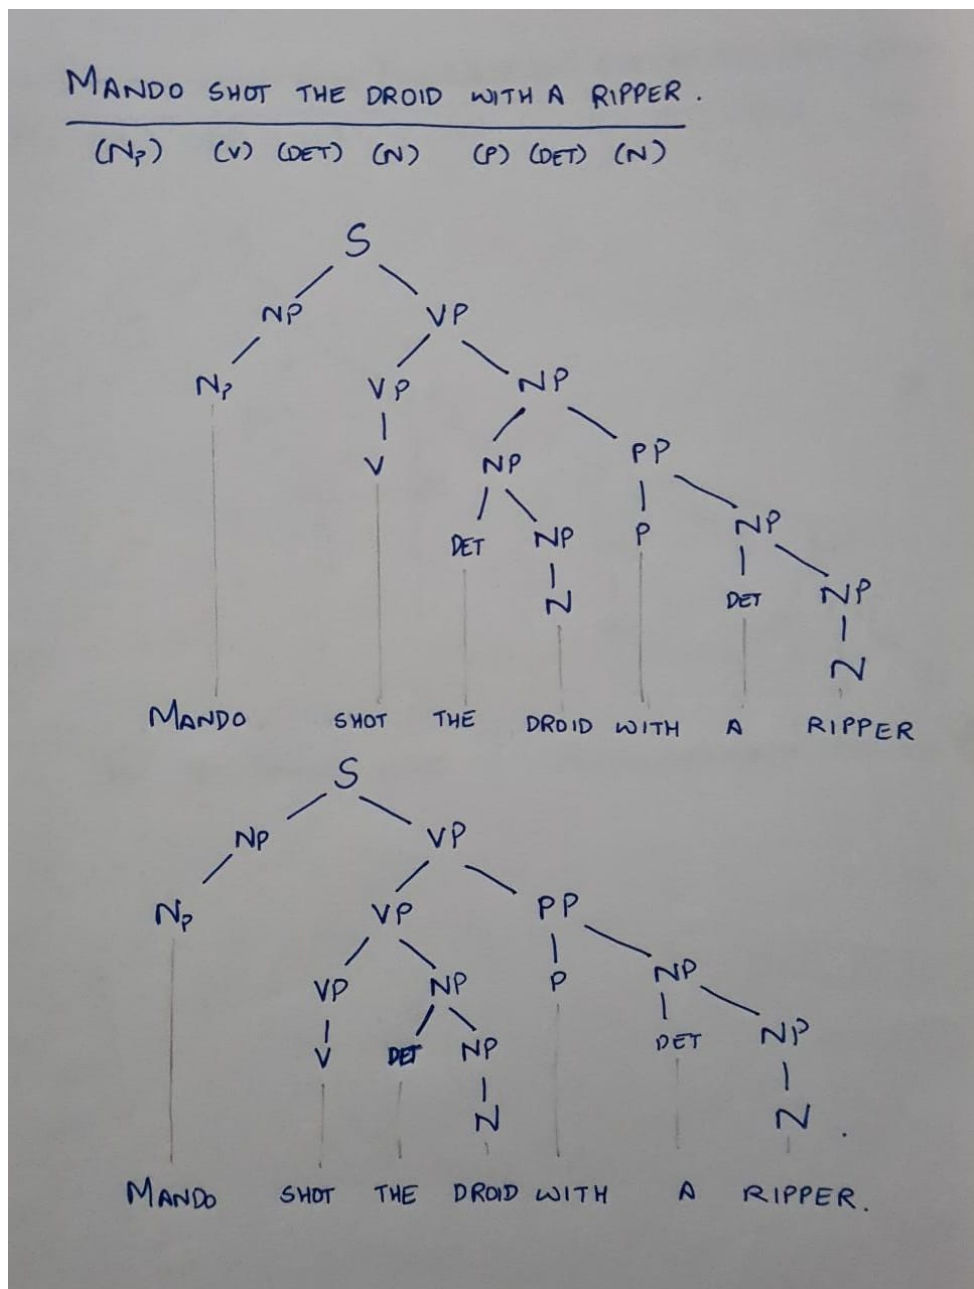 MANDO SHOT THE DROID WITH A RIPPER.
(Np) (V) (DET) (N) (P) (DET) (N)
S
NP VP
Np VP NP
V NP PP
DET NP P NP
N DET NP
N
MANDO SHOT THE DROID WITH A RIPPER
S
NP VP
Np VP PP
VP NP P NP
V DET NP DET NP
N N .
MANDO SHOT THE DROID WITH A RIPPER.